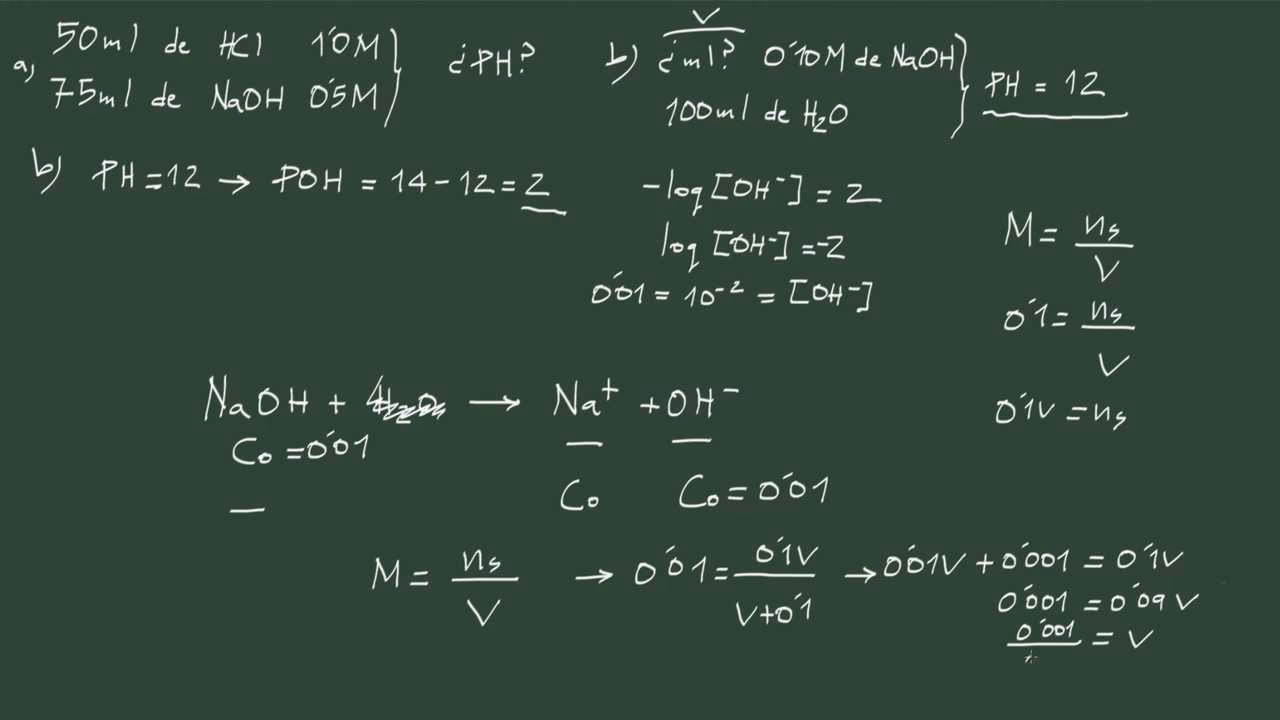 a) 50ml de HCl 1'0M
75ml de NaOH 0'5M
¿PH?
b) V
¿ml? 0'10M de NaOH
100ml de H₂O
PH = 12
b) PH=12 → POH = 14-12=2
-log [OH⁻] = 2
log [OH⁻] =-2
0'01 = 10⁻² = [OH⁻]
M = ns/V
0'1 = ns/V
0'1V = ns
NaOH + H₂O → Na⁺ + OH⁻
Co =0'01
Co Co = 0'01
M = ns/V → 0'01 = 0'1V/V+0'1 → 0'01V + 0'001 = 0'1V
0'001 = 0'09V
0'001 = V